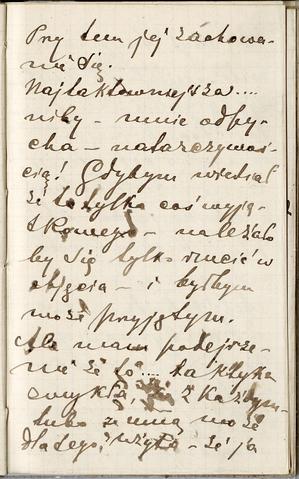 Przy tem jej zachowa-
nie się.
Najtaktowniejsza....
niby – mnie odpy-
cha – natarczywoś-
cią! Gdybym wiedział
że to tylko coś wyją-
tkowego – należało
by się tylko rzucić w
objęcia – i byłbym
może przyjętym.
Ale mam podejrze-
nie że to.... taktyka
zwykła, z każdym-
tylko ze mną może
dlatego, – że ja